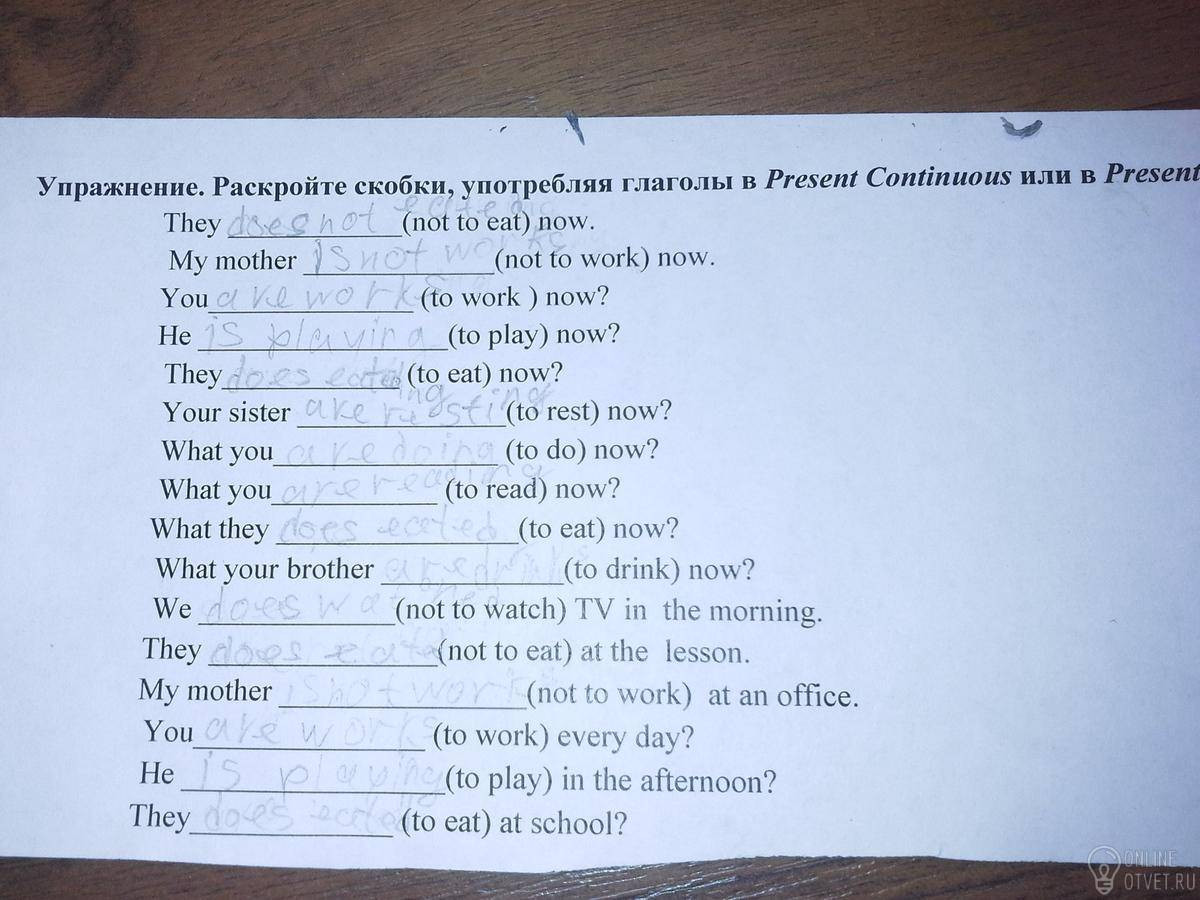 Упражнение. Раскройте скобки, употребляя глаголы в Present Continuous или в Present
They does not (not to eat) now.
My mother is not works (not to work) now.
You are works (to work ) now?
He is playing (to play) now?
They does (to eat) now?
Your sister are resting (to rest) now?
What you are doing (to do) now?
What you are reading (to read) now?
What they does eated (to eat) now?
What your brother are drinks (to drink) now?
We does watched (not to watch) TV in the morning.
They does (not to eat) at the lesson.
My mother is not works (not to work) at an office.
You are works (to work) every day?
He is playing (to play) in the afternoon?
They does eated (to eat) at school?
ONLINE
OTVET.RU